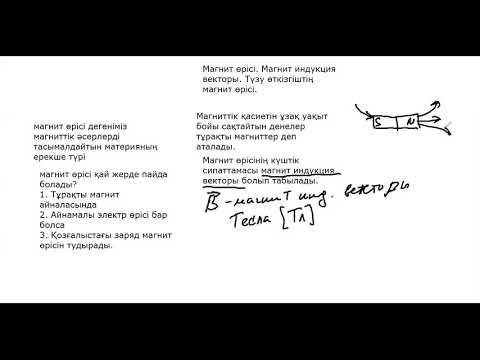 Магнит өрісі. Магнит индукция
векторы. Түзу өткізгіштің
магнит өрісі.
магнит өрісі дегеніміз
магниттік әсерлерді
тасымалдайтын материяның
ерекше түрі
Магниттік қасиетін ұзақ уақыт
бойы сақтайтын денелер
тұрақты магниттер деп
аталады.
Магнит өрісінің күштік
сипаттамасы магнит индукция
векторы болып табылады.
магнит өрісі қай жерде пайда
болады?
1. Тұрақты магнит
айналасында
2. Айнамалы электр өрісі бар
болса
3. Қозғалыстағы заряд магнит
өрісін тудырады.
S N
B - магнит инд. векторы
Тесла [Тл]